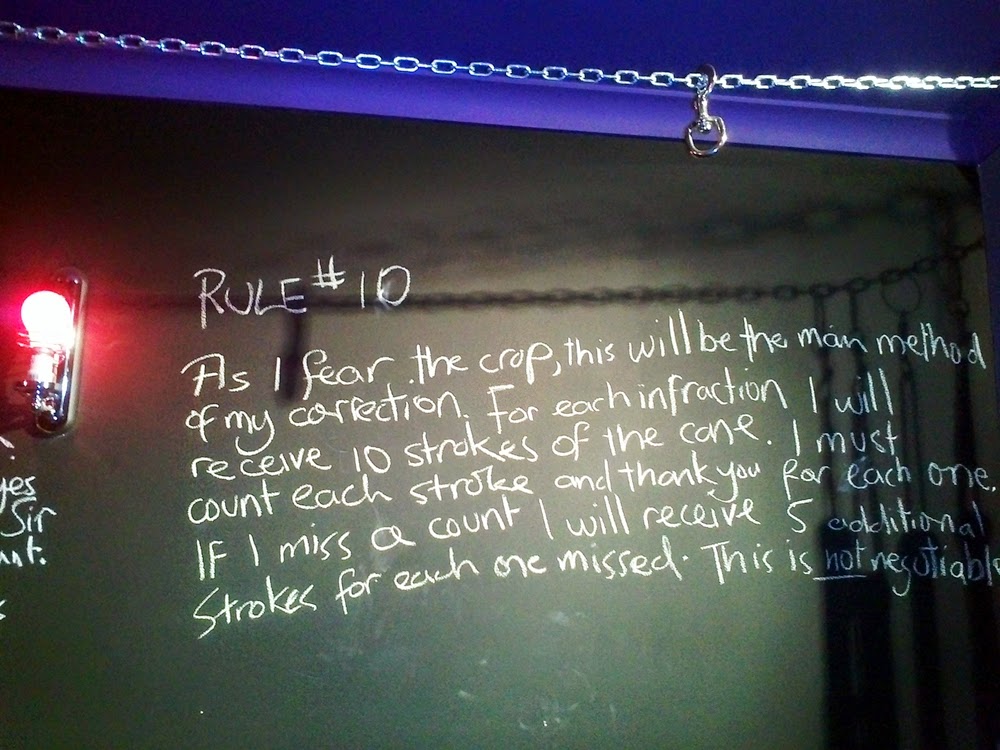 RULE #10
As I fear the crop, this will be the main method
of my correction. For each infraction I will
receive 10 strokes of the cane. I must
count each stroke and thank you for each one.
If I miss a count I will receive 5 additional
strokes for each one missed. This is not negotiable
yes
Sir